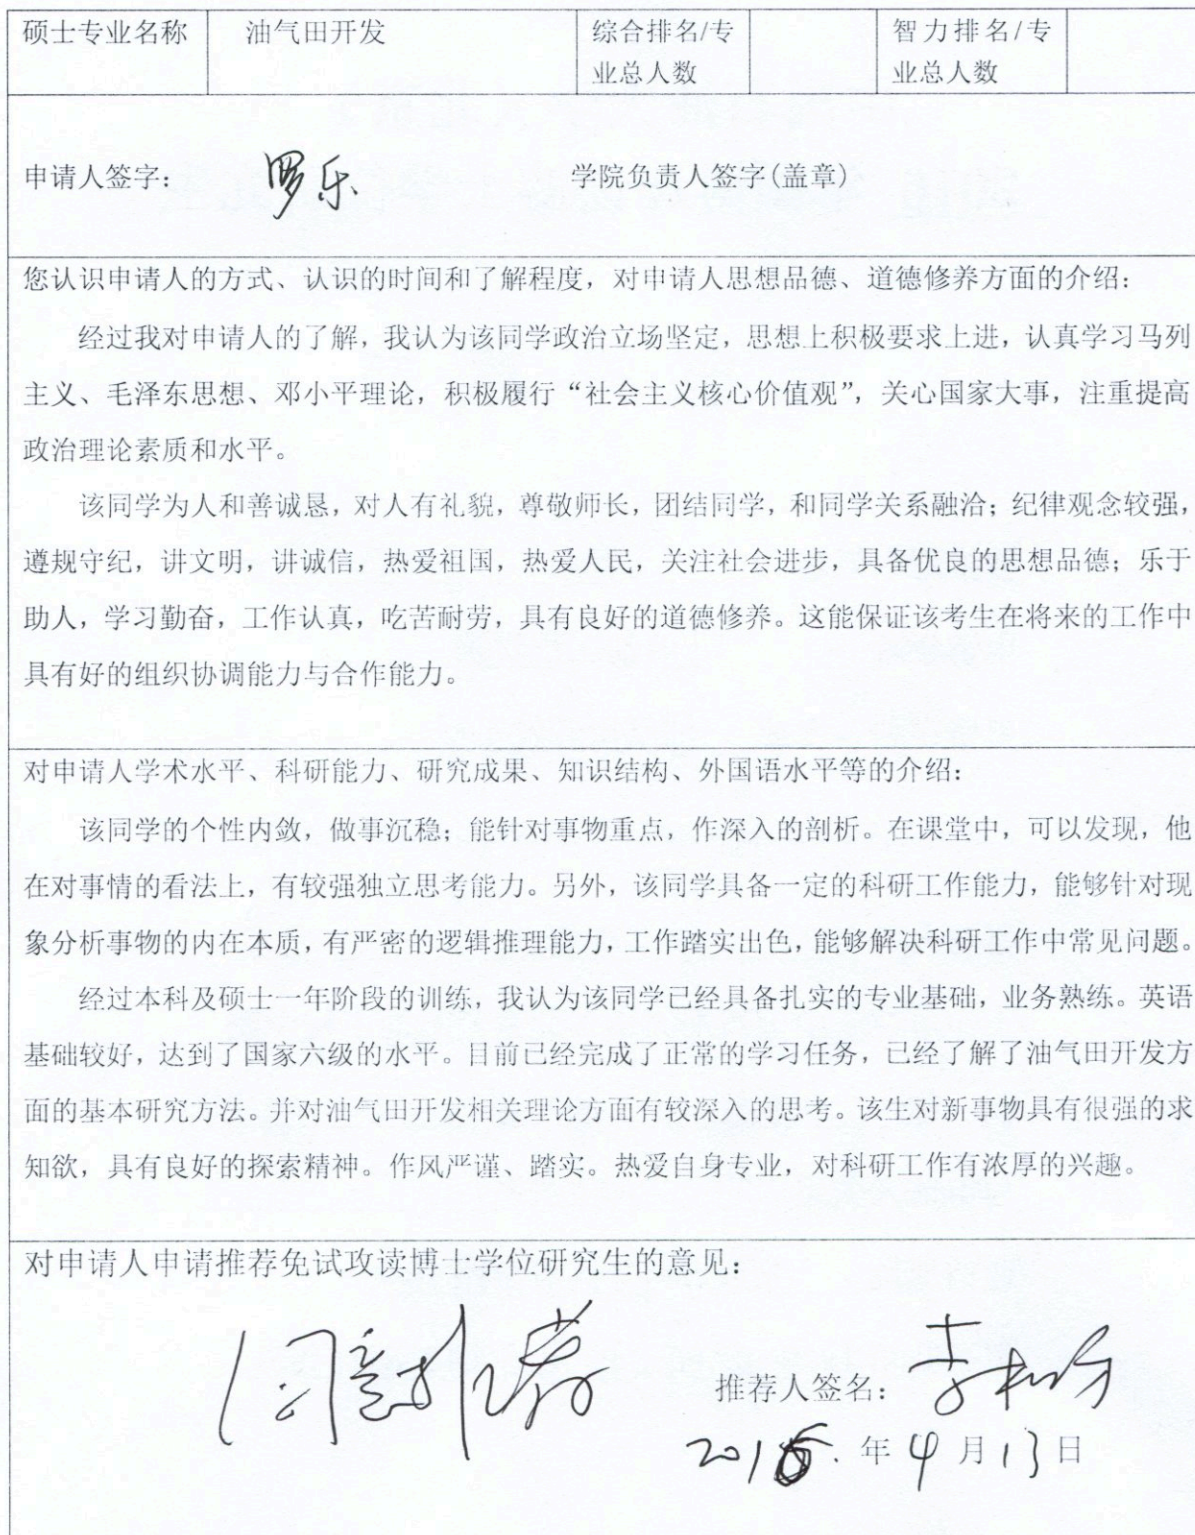 硕士专业名称 油气田开发 综合排名/专业总人数 智力排名/专业总人数
申请人签字： 罗乐 学院负责人签字(盖章)
您认识申请人的方式、认识的时间和了解程度，对申请人思想品德、道德修养方面的介绍：
经过我对申请人的了解，我认为该同学政治立场坚定，思想上积极要求上进，认真学习马列
主义、毛泽东思想、邓小平理论，积极履行“社会主义核心价值观”，关心国家大事，注重提高
政治理论素质和水平。
该同学为人和善诚恳，对人有礼貌，尊敬师长，团结同学，和同学关系融洽；纪律观念较强，
遵规守纪，讲文明，讲诚信，热爱祖国，热爱人民，关注社会进步，具备优良的思想品德；乐于
助人，学习勤奋，工作认真，吃苦耐劳，具有良好的道德修养。这能保证该考生在将来的工作中
具有好的组织协调能力与合作能力。
对申请人学术水平、科研能力、研究成果、知识结构、外国语水平等的介绍：
该同学的个性内敛，做事沉稳；能针对事物重点，作深入的剖析。在课堂中，可以发现，他
在对事情的看法上，有较强独立思考能力。另外，该同学具备一定的科研工作能力，能够针对现
象分析事物的内在本质，有严密的逻辑推理能力，工作踏实出色，能够解决科研工作中常见问题。
经过本科及硕士一年阶段的训练，我认为该同学已经具备扎实的专业基础，业务熟练。英语
基础较好，达到了国家六级的水平。目前已经完成了正常的学习任务，已经了解了油气田开发方
面的基本研究方法。并对油气田开发相关理论方面有较深入的思考。该生对新事物具有很强的求
知欲，具有良好的探索精神。作风严谨、踏实。热爱自身专业，对科研工作有浓厚的兴趣。
对申请人申请推荐免试攻读博士学位研究生的意见：
同意推荐 推荐人签名：
年 4 月 13 日